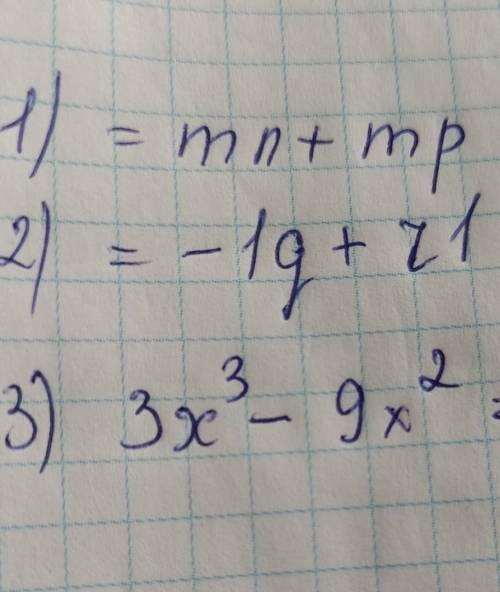 1) = mn + mp
2) = -1q + r1
3) 3x³ - 9x² =